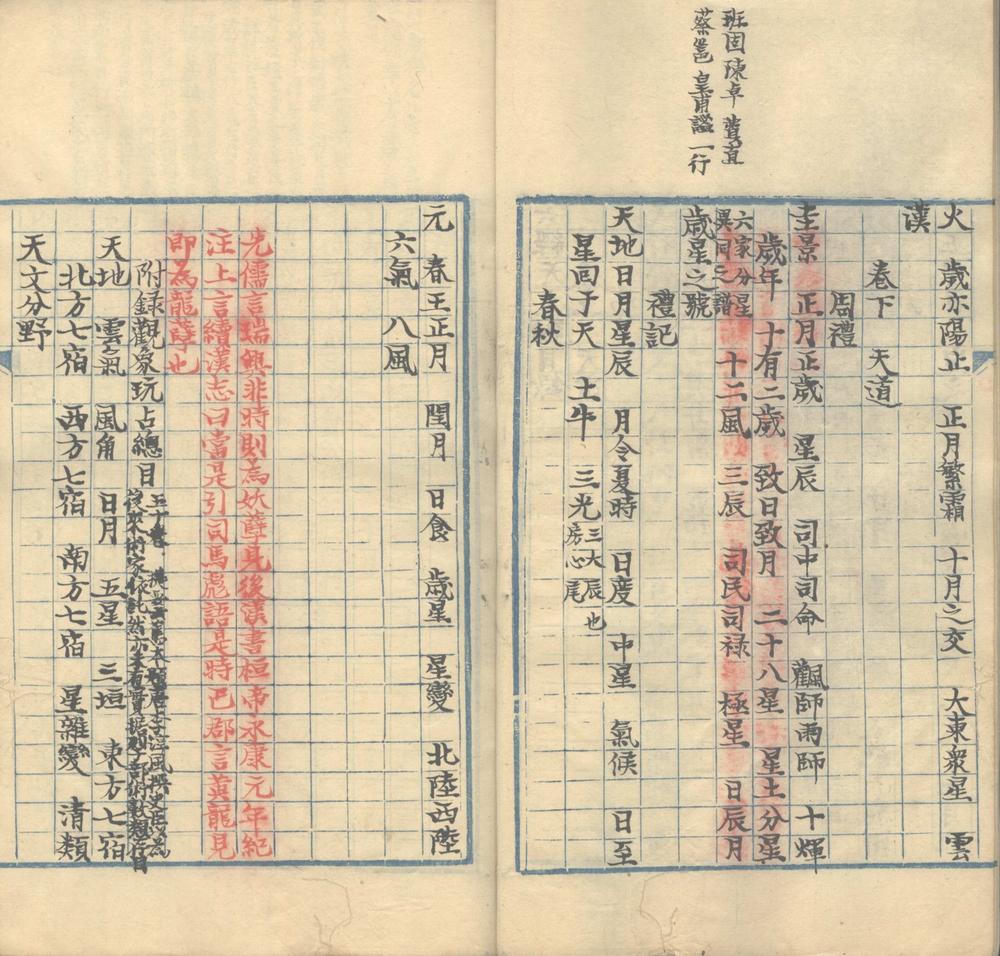 班固 陳卓 費直
蔡邕 皇甫謐 一行
火 歲亦陽止 正月繁霜 十月之交 大東衆星 雲
漢
卷下 天道
周禮
圭景 正月正歲 星辰 司中司命 飌師雨師 十煇
歲年 十有二歲 致日致月 二十八星 星土分星
六家分星
異同之譜
十二風 三辰 司民司禄 極星 日辰月
歲星之號
禮記
天地日月星辰 月令夏時 日度 中星 氣候 日至
星回于天 土牛 三光
三大辰也
房心尾
春秋
元 春王正月 閏月 日食 歲星 星變 北陸西陸
六氣 八風
先儒言瑞興非時則為妖孽見後漢書桓帝永康元年紀
注上言續漢志曰當是引司馬彪語是時巴郡言黃龍見
即為龍孽也
附錄觀象玩占總目
五十卷 撰
後來術家依託然亦
天地 雲氣 風角 日月 五星 三垣 東方七宿
北方七宿 西方七宿 南方七宿 星雜變 清類
天文分野